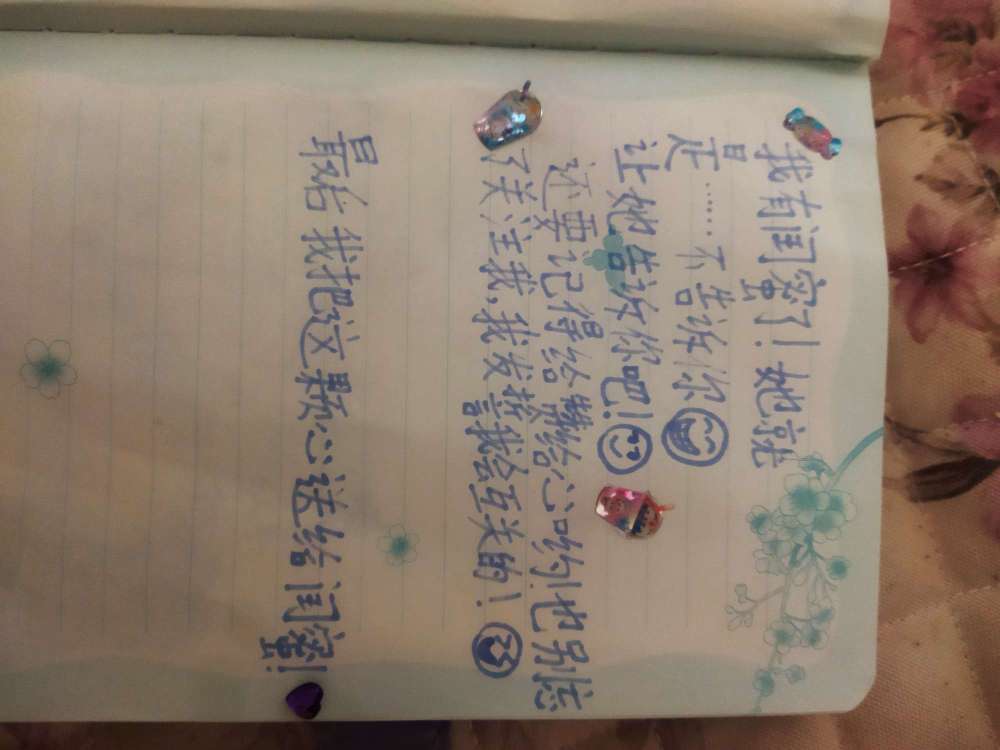 我有闺蜜了！她就
是……不告诉你
让她告诉你吧！
还要记得给赞给心哟！也别忘
了关注我，我发誓我会互关的！
最后我把这颗心送给闺蜜！